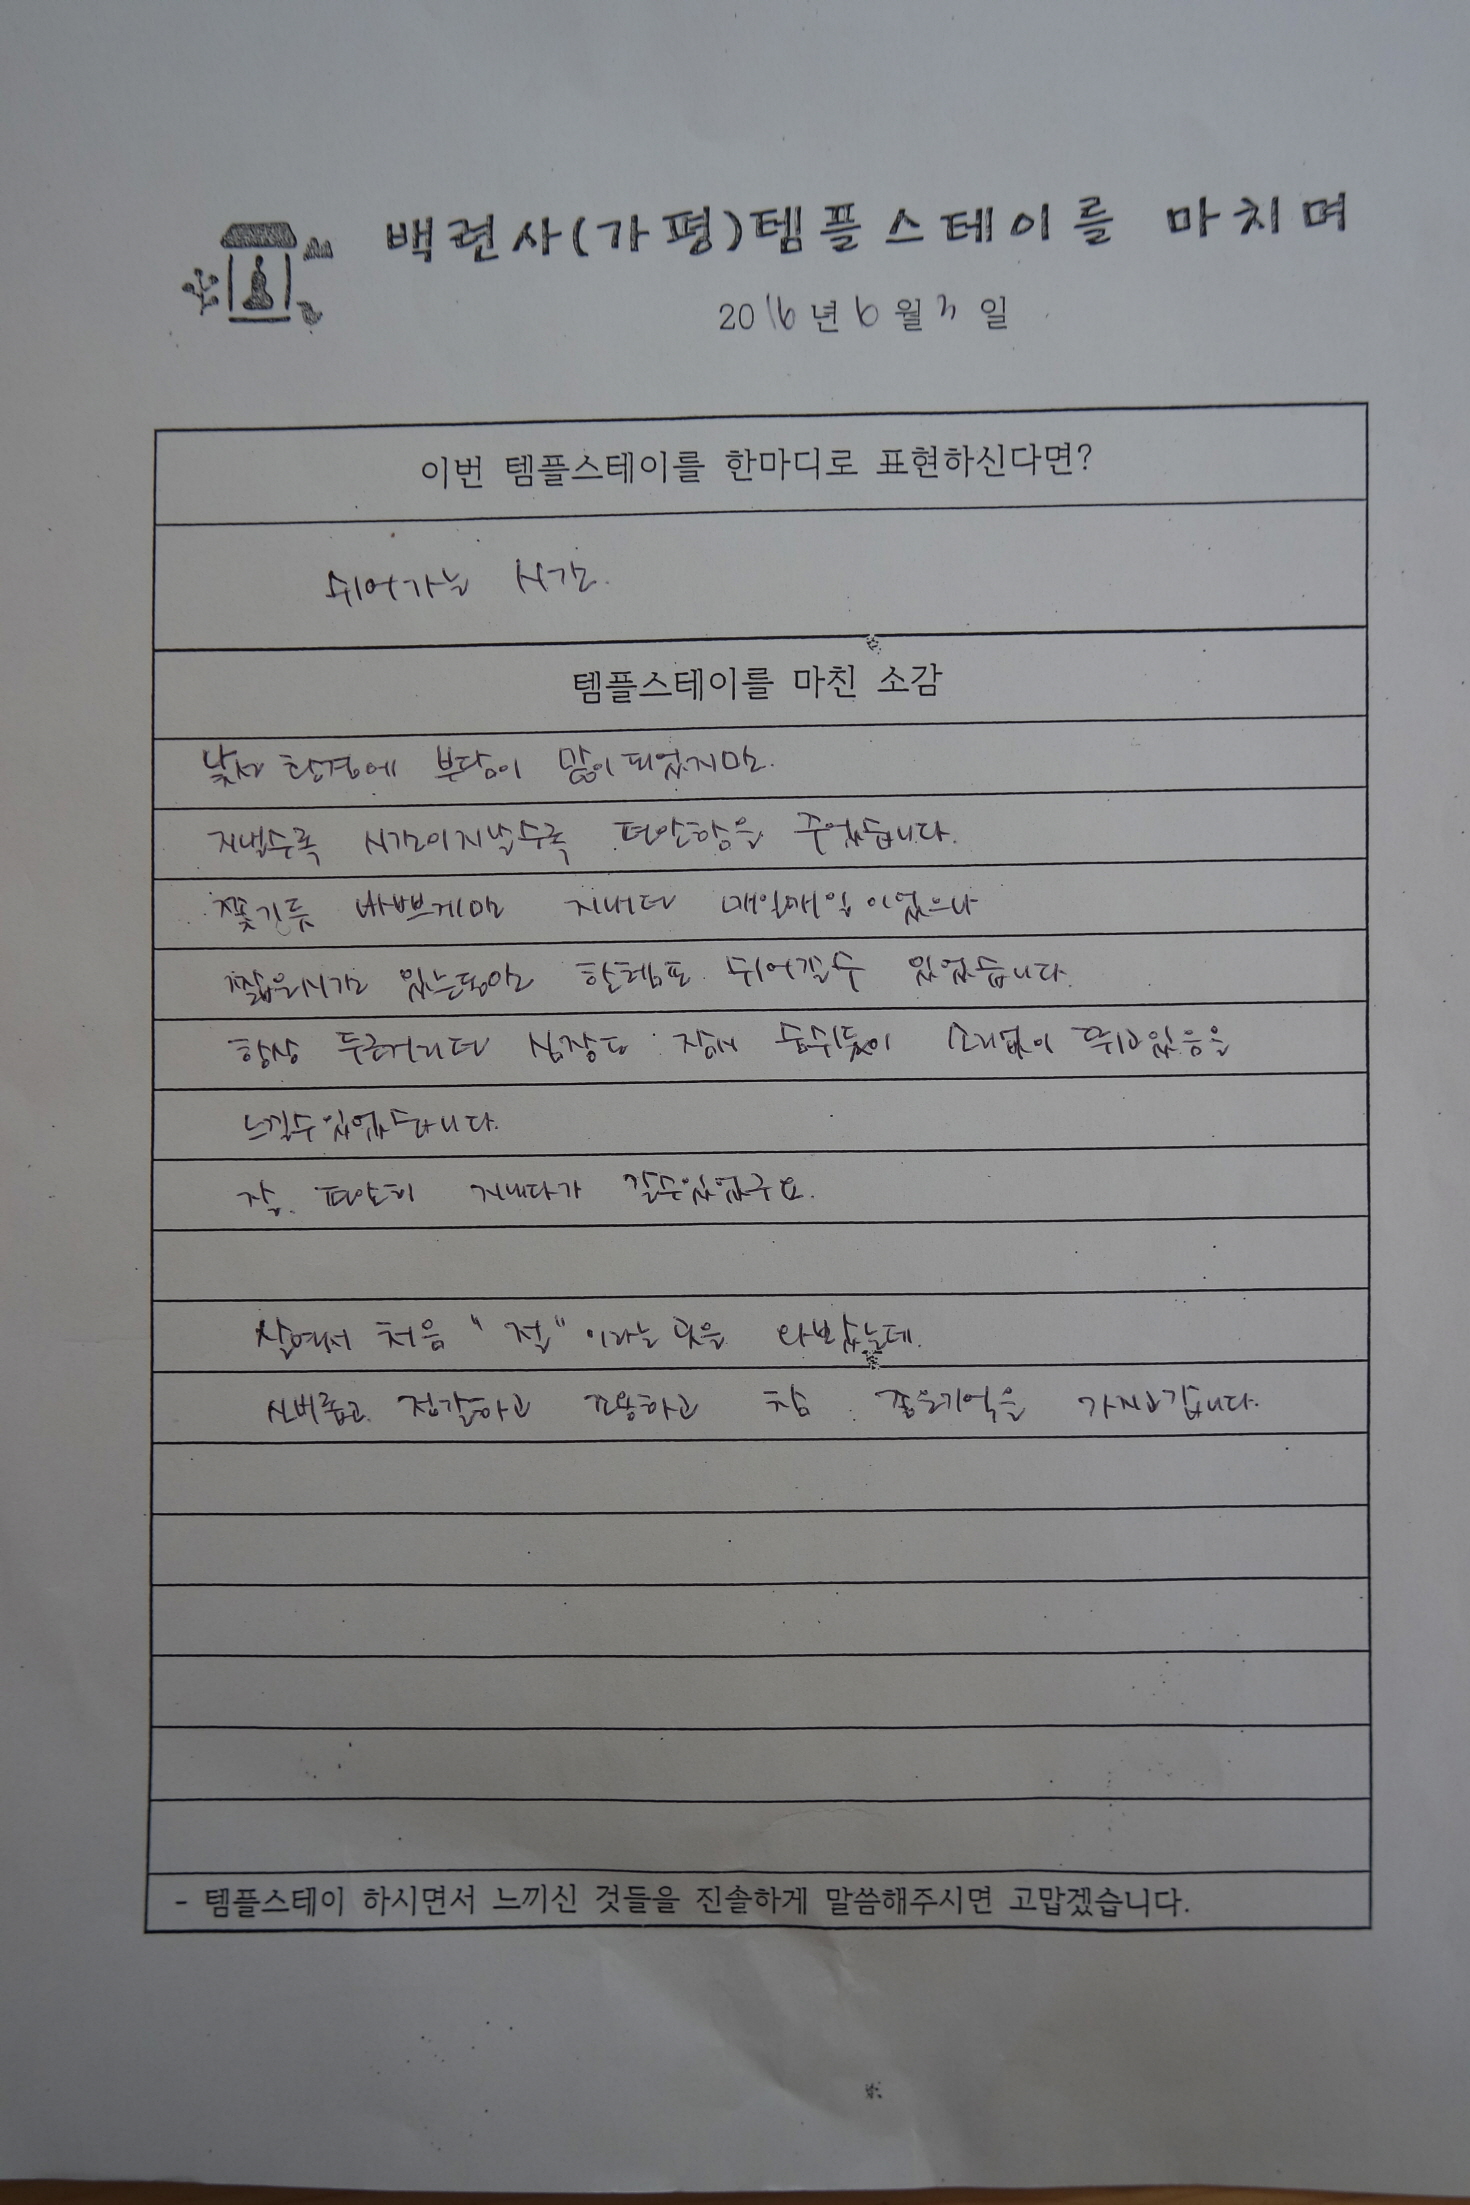 백련사(가평)템플스테이를 마치며
2016년 6월 3일
이번 템플스테이를 한마디로 표현하신다면?
쉬어가는 시간.
템플스테이를 마친 소감
낯선 환경에 부담이 많이 되었지만.
지낼수록 시간이지날수록 편안함을 주었습니다.
쫓기듯 바쁘게만 지내던 매일매일 이었으나
짧은시간 있는동안 한템포 쉬어갈수 있었습니다.
항상 두근거리던 심장도 잠시 숨쉬듯이 소리없이 뛰고있음을
느낄수있었습니다.
잘. 편안히 지내다가 갈수있었구요.
살면서 처음 "절" 이라는 곳을 와보았는데.
신비롭고 정갈하고 조용하고 참 좋은기억을 가지고갑니다.
- 템플스테이 하시면서 느끼신 것들을 진솔하게 말씀해주시면 고맙겠습니다.